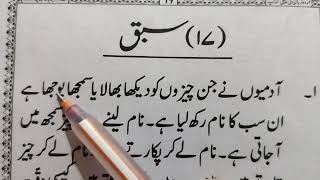 (۱۷) سبق
۱۔ آدمیوں نے جن چیزوں کو دیکھا بھالا یا سمجھا بوجھا ہے
ان سب کا نام رکھ لیا ہے۔ نام لینے سمجھ میں
آجاتی ہے۔ نام لے کر پکارتے نام لے کر چیز